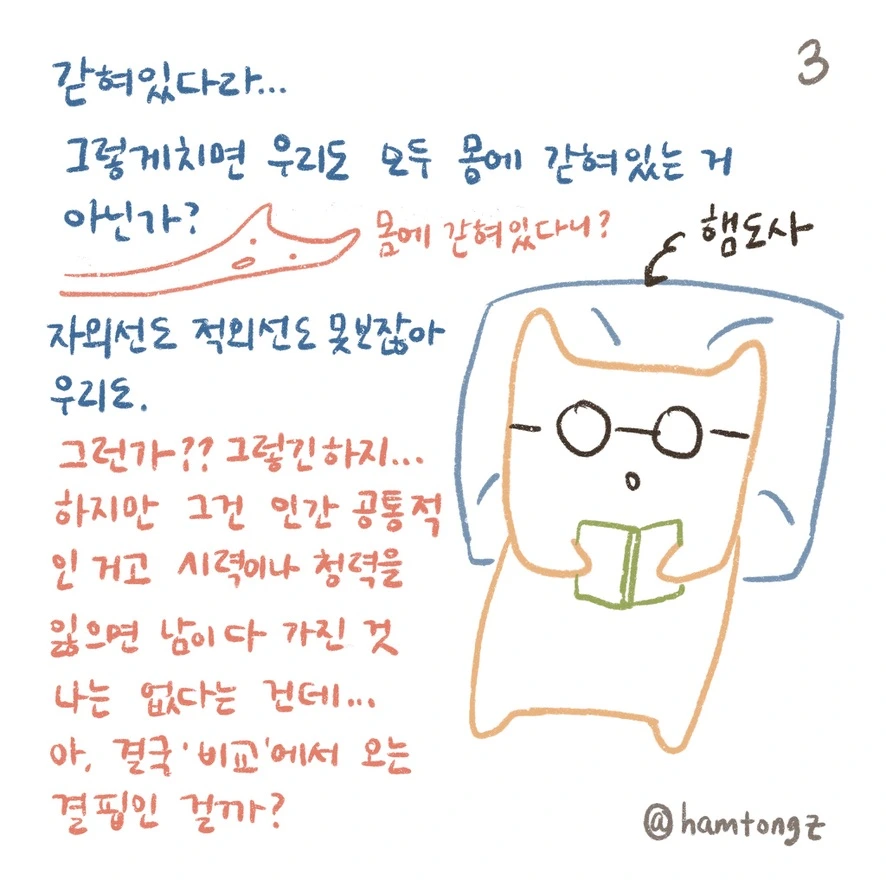 3
갇혀있다라...
그렇게치면 우리도 모두 몸에 갇혀있는 거
아닌가?
몸에 갇혀있다니?
햄도사
자외선도 적외선도 못보잖아
우리도.
그런가?? 그렇긴하지...
하지만 그건 인간 공통적
인 거고 시력이나 청력을
잃으면 남이 다 가진 것
나는 없다는 건데...
아, 결국 '비교'에서 오는
결핍인 걸까?
@hamtongz